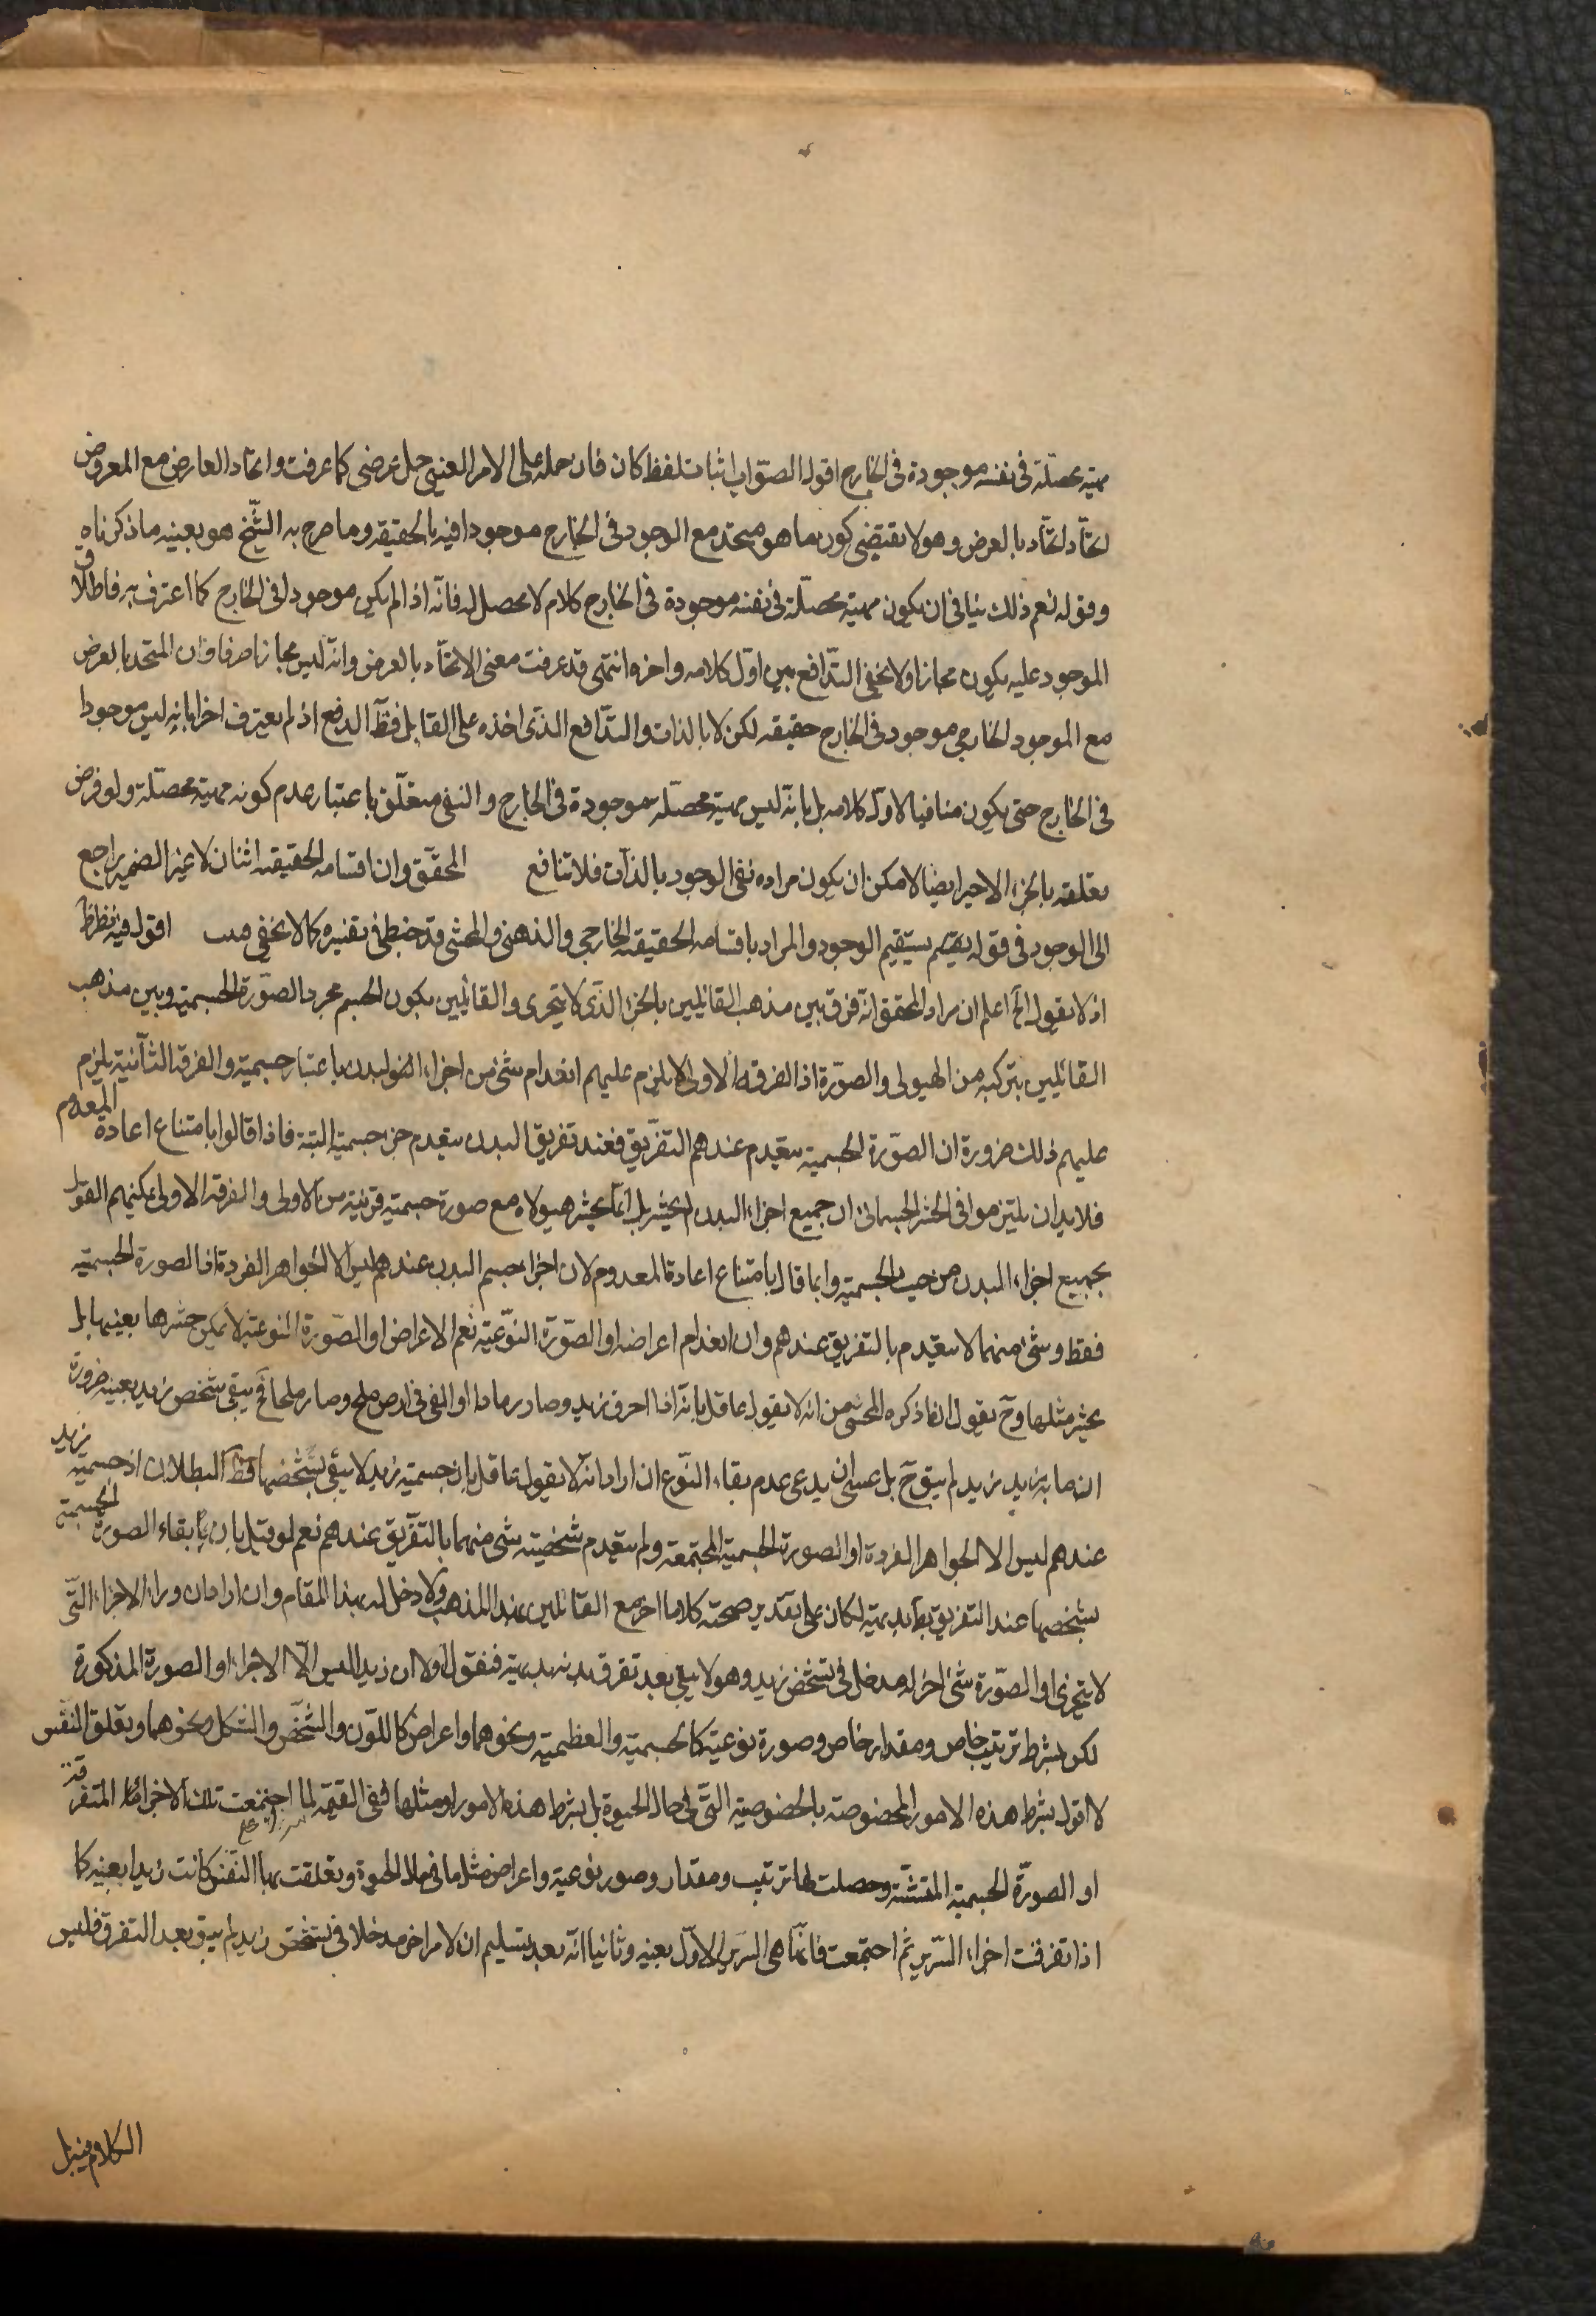 مهية محصلة في نفسه موجودة في الخارج اقول الصواب اثبات لفظ كان فان حمله على الامر العيني حمل عرضي كما عرفت واتحاد العارض مع المعروض
اتحاد بالعرض وهو لا يقتضي كون ما هو متحد مع الوجود في الخارج موجودا فيه بالحقيقة وما صرح به الشيخ هو بعينه ما ذكرناه
وقوله نعم ذلك ينافي ان يكون مهية محصلة في نفسه موجودة في الخارج كلام لا محصل له فانه اذا لم يكن موجودا في الخارج كما اعترف به فاطلاق
الموجود عليه يكون مجازا ولا يخفى التدافع بين اول كلامه واخره انتهى قد عرفت معنى الاتحاد بالعرض وانه ليس مجازا صرفا وان المتحد بالعرض
مع الموجود الخارجي موجود في الخارج حقيقة لكن لا بالذات والتدافع الذي اخذه على القايل فظ الدفع اذ لم يعترف اخرا بانه ليس موجودا
في الخارج حتى يكون منافيا لاول كلامه بل بانه ليس مهية محصلة موجودة في الخارج والنفي متعلق باعتبار عدم كونه مهية محصلة ولو فرض
تعلقه بالجزء الاخير ايضا لامكن ان يكون مراده نفي الوجود بالذات فلا تنافع المحقق وان اقسامه الحقيقة اثنان لا غير الضمير راجع
الى الوجود في قوله يقسم الوجود والمراد باقسامه الحقيقة الخارجي والذهني والمحشى قد خبط في تفسيره كما لا يخفى اقول فيه نظر ظ
اذ لا يقول الخ اعلم ان مراد المحقق انه فرق بين مذهب القائلين بالجزء الذي لا يتجزى والقائلين بكون الجسم مجرد الصورة الجسمية وبين مذهب
القائلين بتركبه من الهيولى والصورة اذ الفرقة الاولى لا يلزم عليهم انعدام شئ من اجزاء البدن باعتبار جسمية والفرقة الثانية يلزم
عليهم ذلك ضرورة ان الصورة الجسمية ينعدم عندهم التفريق فعند تفريق البدن ينعدم جزء جسمية البتة فاذا قالوا بامتناع اعادة المعدوم
فلا بد ان يلتزموا في الحشر الجسماني ان جميع اجزاء البدن لا يحشر بل انما يحشر هيولاه مع صورة جسمية قريبة من الاولى والفرقة الاولى يمكنهم القول
بجميع اجزاء البدن من حيث الجسمية وانما قال بامتناع اعادة المعدوم لان اجزاء جسم البدن عندهم ليس الا الجواهر الفردة او الصورة الجسمية
فقط وشئ منهما لا ينعدم بالتفريق عندهم وان انعدام اعراضه او الصورة النوعية نعم الاعراض او الصورة النوعية لا يمكن حشرها بعينها بل
يحشر مثلها وح نقول ان ما ذكره المحشى من انه لا يقول عاقل بانه اذا احرق زيد وصار رمادا او القى في ارض ملح وصار ملحا فح يبقى شخص زيد بعينه ضرورة
ان ما به زيد زيد لم يبق ح بل عسى ان يدعى عدم بقاء النوع ان اراد انه لا يقول عاقل بان جسمية زيد لا يبقى بتشخصها فظ البطلان اذ جسمية زيد
عندهم ليس الا الجواهر الفردة او الصورة الجسمية المجتمعة ولم ينعدم شخصية شئ منهما بالتفريق عندهم نعم لو قيل بان بقاء الصورة الجسمية
بشخصها عند التفريق بط بديهية لكان على تقدير صحته كلاما اخر مع القائلين بهذا المذهب ولا دخل له بهذا المقام وان اراد ان وراء الاجزاء التي
لا يتجزى او الصورة شئ اخر له مدخل في تشخص زيد وهو لا يبقى بعد تفرق بدنه بديهية فنقول اولا ان زيدا ليس الا الاجزاء او الصورة المذكورة
لكن بشرط ترتيب خاص ومقدار خاص وصورة نوعية كاللحمية والعظمية ونحوهما واعراض كاللون والشكل ونحوهما وتعلق النفس
لا اقول بشرط هذه الامور المخصوصة بالخصوصية التي في حال الحيوة بل بشرط هذه الامور او مثلها ففي القيمة لما اجتمعت تلك الاجزاء المتفرقة
او الصورة الجسمية المتشتتة وحصلت لها ترتيب ومقدار وصور نوعية واعراض مثل ما في حال الحيوة وتعلقت بها النفس كانت زيدا بعينه كما
اذا تفرقت اجزاء السرير ثم اجتمعت فانها هي السرير الاول بعينه وثانيا انه بعد تسليم ان لامر اخر مدخلا في تشخص زيد لم يبق بعد التفرق فليس
الكلام فيه بل